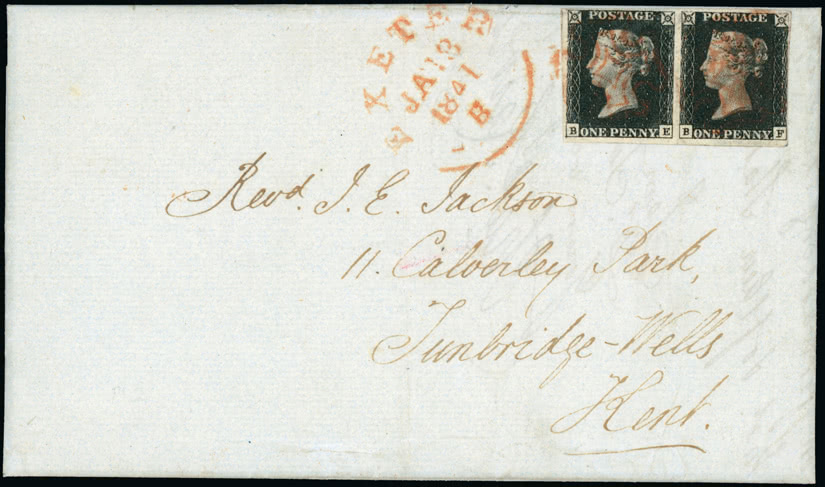 EXETER
JA 18
1841
B
POSTAGE POSTAGE
B ONE PENNY E B ONE PENNY F
Revd. J. E. Jackson
11. Calverley Park,
Tunbridge-Wells
Kent.